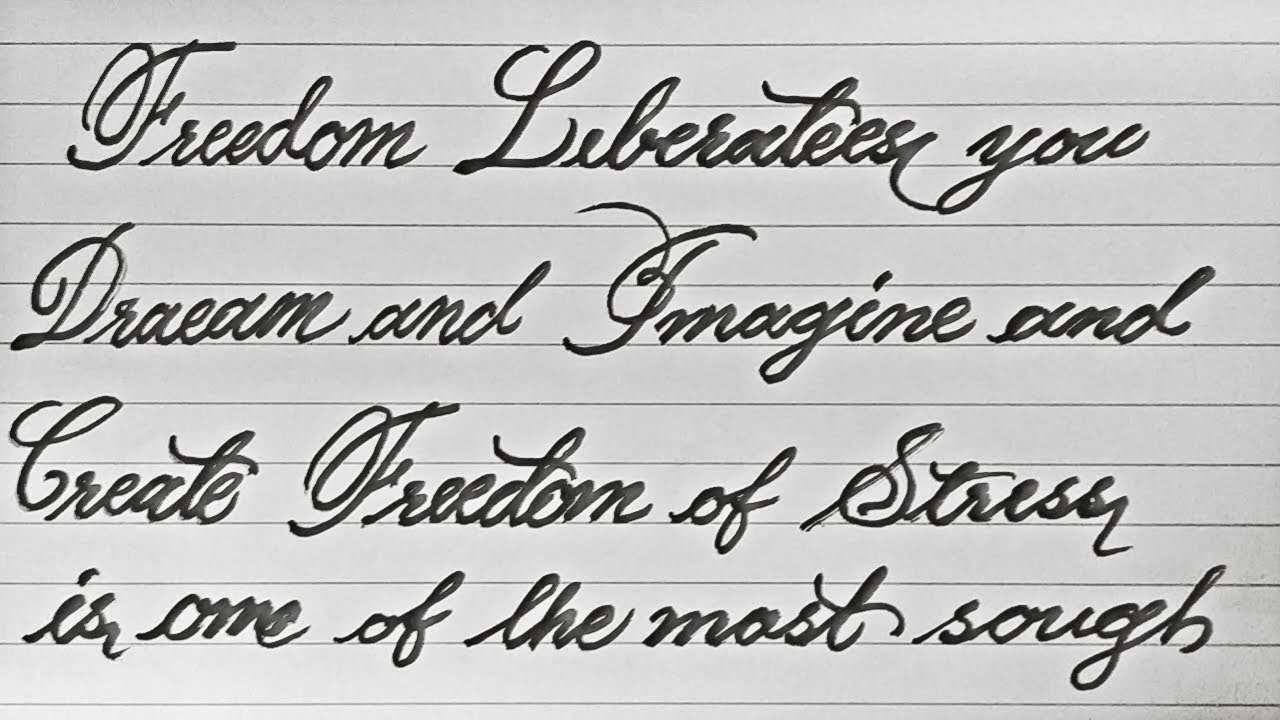 Freedom Liberatees you
Draeam and Imagine and
Create Freedom of Stress
is one of the most sough